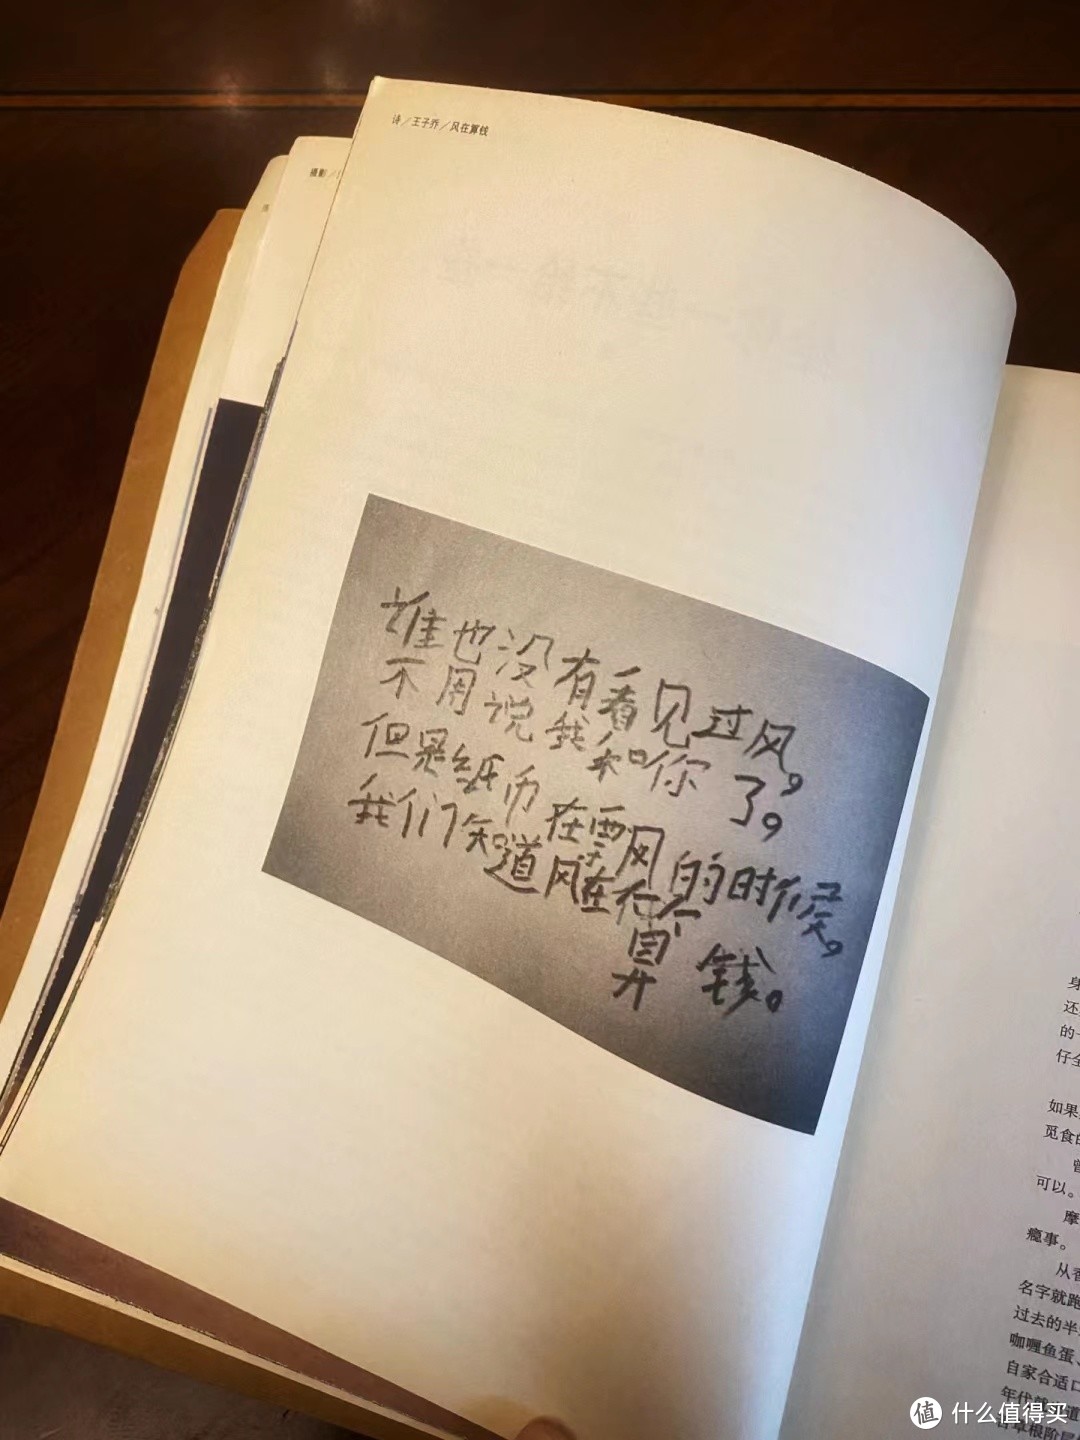 诗／王子乔／风在算钱
摄影／
谁也没有看见过风。
不用说我和你了。
但是纸币在飘风的时候。
我们知道风在
算钱。
身
还
的一
仔全
如果
觅食的
曾
可以。
摩
瘾事。
从香
名字就跑
过去的半
咖喱鱼蛋、
自家合适口
年代
草根阶层
值 什么值得买